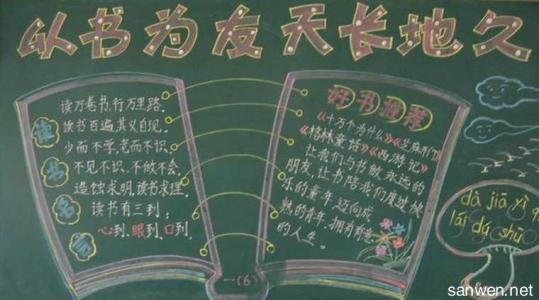 以书为友天长地久
读书名言
读万卷书,行万里路。
读书百遍,其义自见。
少而不学,老而不识。
不见不识,不做不会。
造烛求明,读书求理。
读书有三到:
心到,眼到,口到。
好书推荐
《十万个为什么》《芝麻开门》
《格林童话》《西游记》
让我们与书做永远的
朋友,让书陪我们度过快
乐的童年,迈向成
熟的青年,拥有
的人生。
一(6)
dà jiā yì q
lái dú shū
sanwen.net